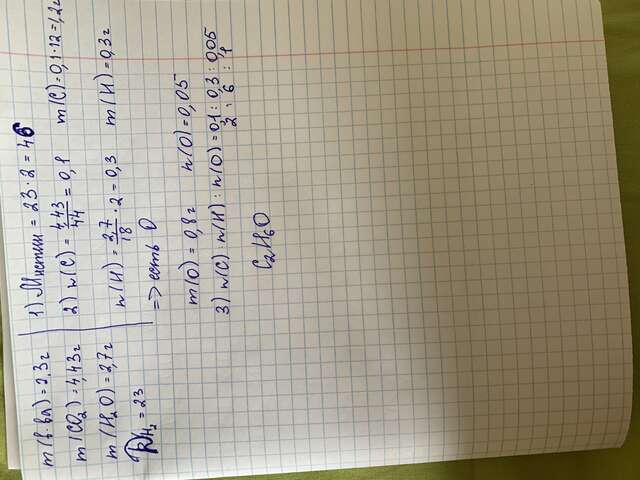 m(в.ва) = 2,3г
m(CO₂) = 4,43г
m(H₂O) = 2,7г
D H₂ = 23
1) Mистин = 23·2 = 46
2) n(C) = 4,43/44 = 0,1 m(C) = 0,1·12 = 1,2г
n(H) = 2,7/18 · 2 = 0,3 m(H) = 0,3г
=> есть O
m(O) = 0,8г n(O) = 0,05
3) n(C) : n(H) : n(O) = 0,1 : 0,3 : 0,05
2 : 6 : 1
C₂H₆O